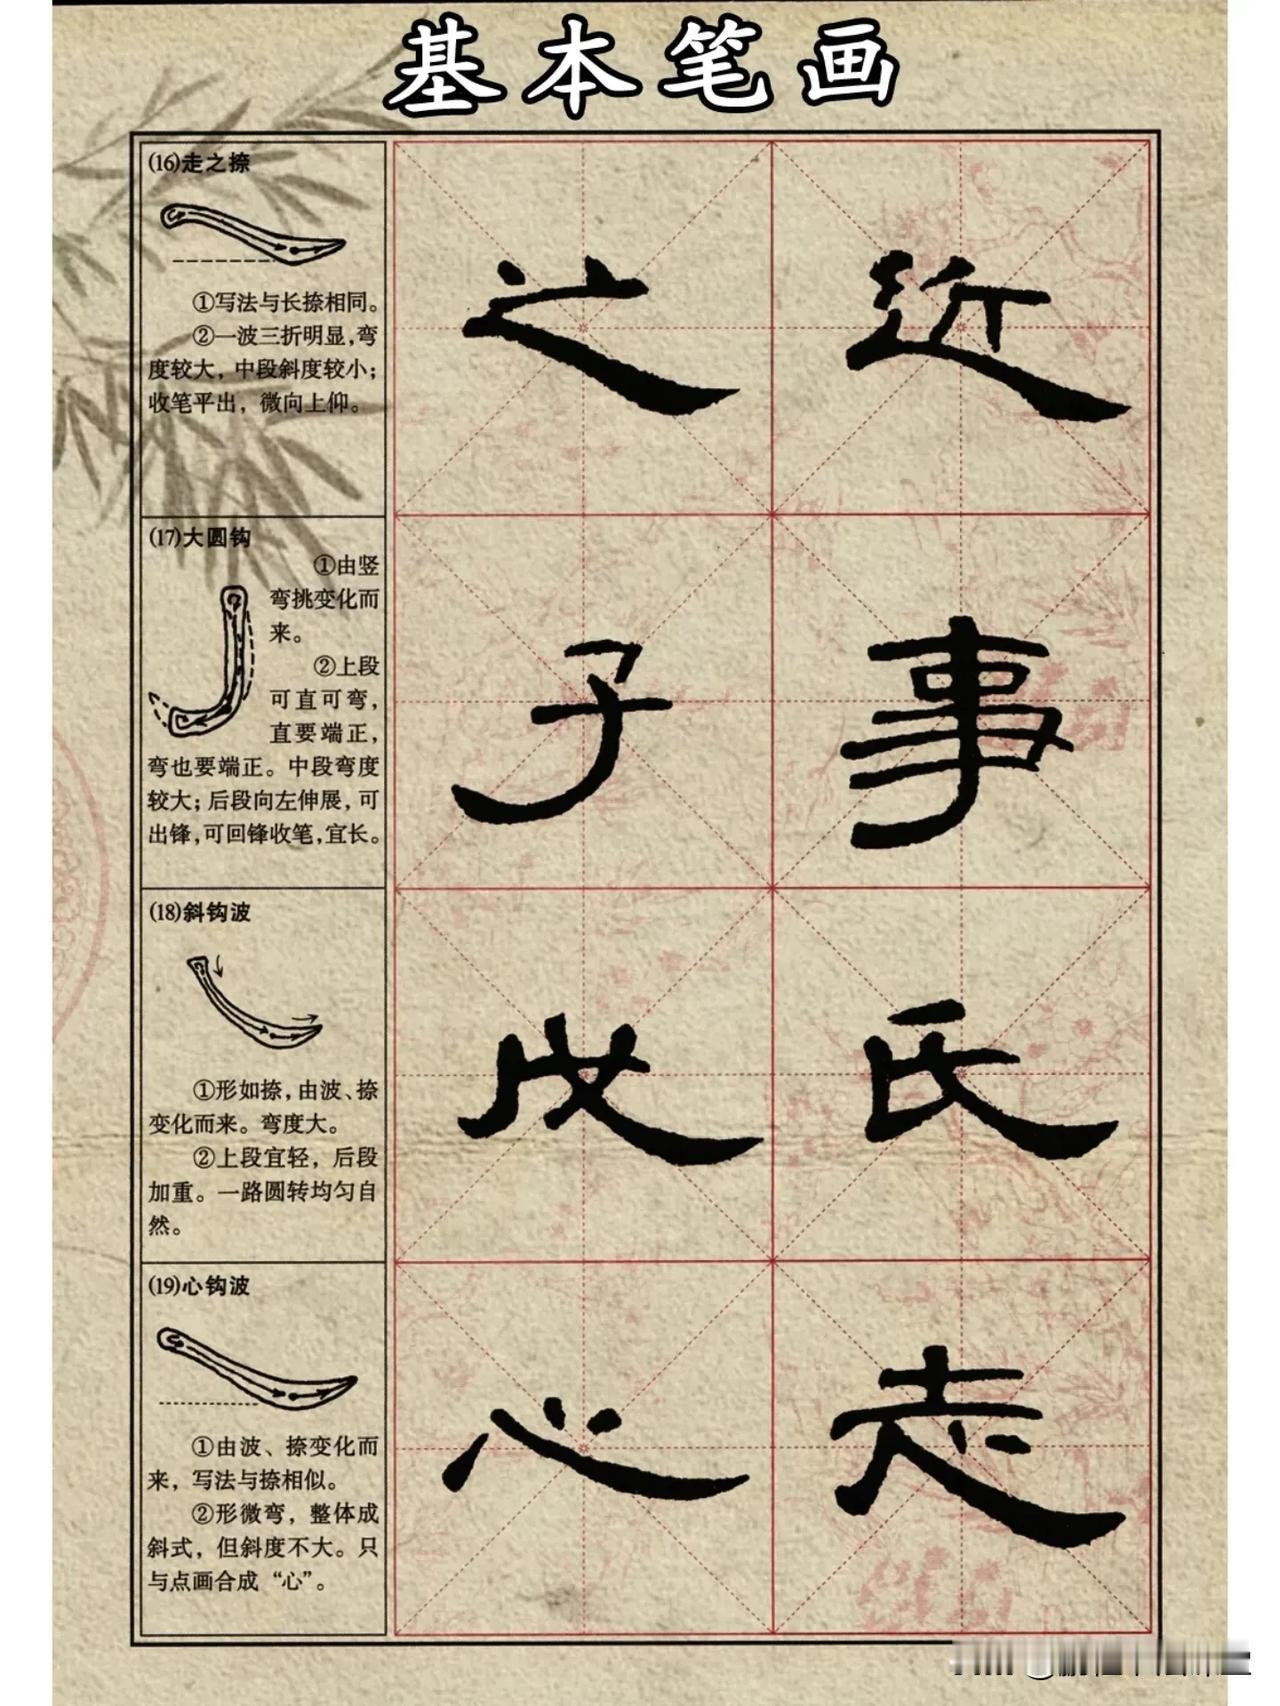 基本笔画
(16)走之捺
①写法与长捺相同。
②一波三折明显,弯
度较大，中段斜度较小；
收笔平出，微向上仰。
之 近
(17)大圆钩
①由竖
弯挑变化而
来。
②上段
可直可弯，
直要端正，
弯也要端正。中段弯度
较大；后段向左伸展，可
出锋，可回锋收笔，宜长。
子 事
(18)斜钩波
①形如捺，由波、捺
变化而来。弯度大。
②上段宜轻，后段
加重。一路圆转均匀自
然。
氏
(19)心钩波
①由波、捺变化而
来，写法与捺相似。
②形微弯，整体成
斜式，但斜度不大。只
与点画合成“心”。
心